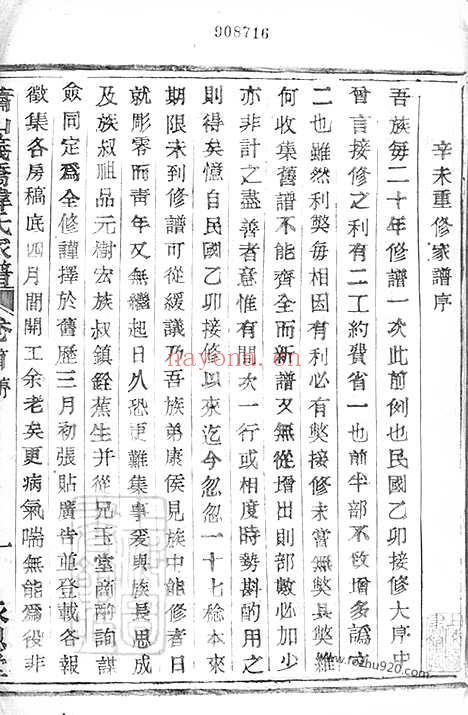 908716
辛未重修家譜序
吾族每二十年修譜一次此前例也民國乙卯接修大序中
曾言接修之利有二工約費省一也前半部不致增多譌字
二也雖然利獘每相因有利必有獘接修未嘗無獘具獘維
何收集舊譜不能齊全而新譜又無從增出則部數必加少
亦非計之盡善者意惟有間次一行或相度時勢斟酌用之
則得矣憶自民國乙卯接修以來迄今忽忽一十七稔本來
期限未到修譜可從緩議乃吾族弟康侯見族中能修者日
就彫零而靑年又無繼起日久恐更難集事爰與族長思成
及族叔祖品元樹宏族叔鎮銓蕉生并從兄玉堂商酌詢謀
僉同定爲全修謹擇於舊歷三月初張貼廣告並登載各報
徵集各房稿底四月間開工余老矣更病氣喘無能爲役非
蕭山義橋韓氏家譜 卷首 序 一
hayona.com